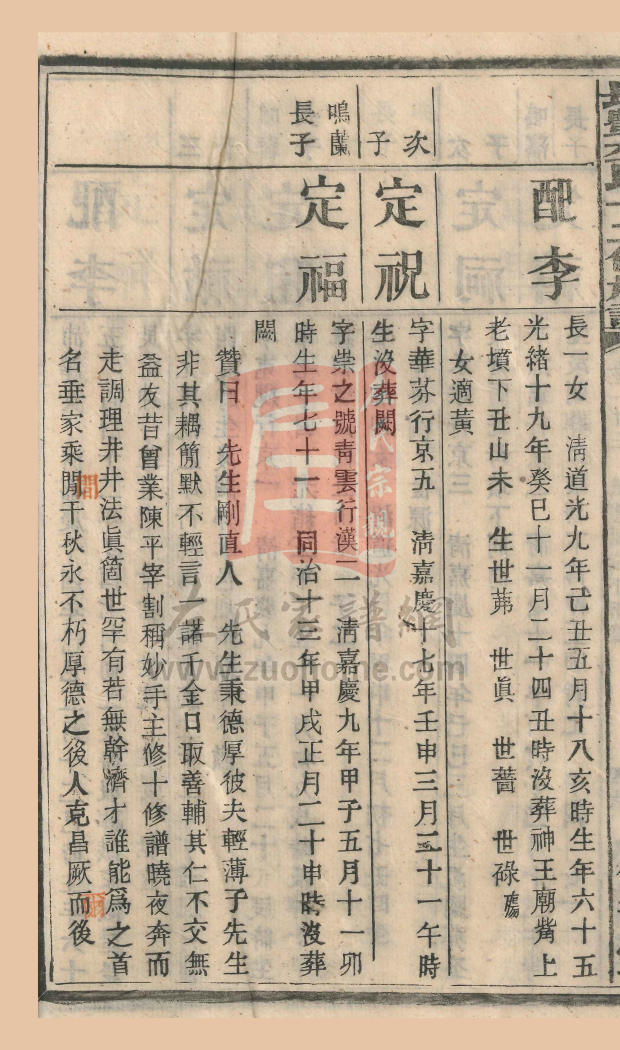 配李
長一女　淸道光九年己丑五月十八亥時生年六十五
光緒十九年癸巳十一月二十四丑時沒葬神王廟嘴上
老墳下丑山未　生世茀　世眞　世薔　世祿殤
女適黃
次子
定祝
字華芬行京五　淸嘉慶十七年壬申三月二十一午時
生沒葬闕
鳴蘭長子
定福
字崇之號靑雲行漢二　淸嘉慶九年甲子五月十一卯
時生年七十一　同治十三年甲戌正月二十申時沒葬
闕
贊曰　先生剛直人　先生秉德厚彼夫輕薄子先生
非其耦簡默不輕言一諾千金口取善輔其仁不交無
益友昔曾業陳平宰割稱妙手主修十修譜曉夜奔而
走調理井井法眞箇世罕有若無幹濟才誰能爲之首
名垂家乘閒千秋永不朽厚德之後人克昌厥而後
左氏家譜網
www.zuohome.com